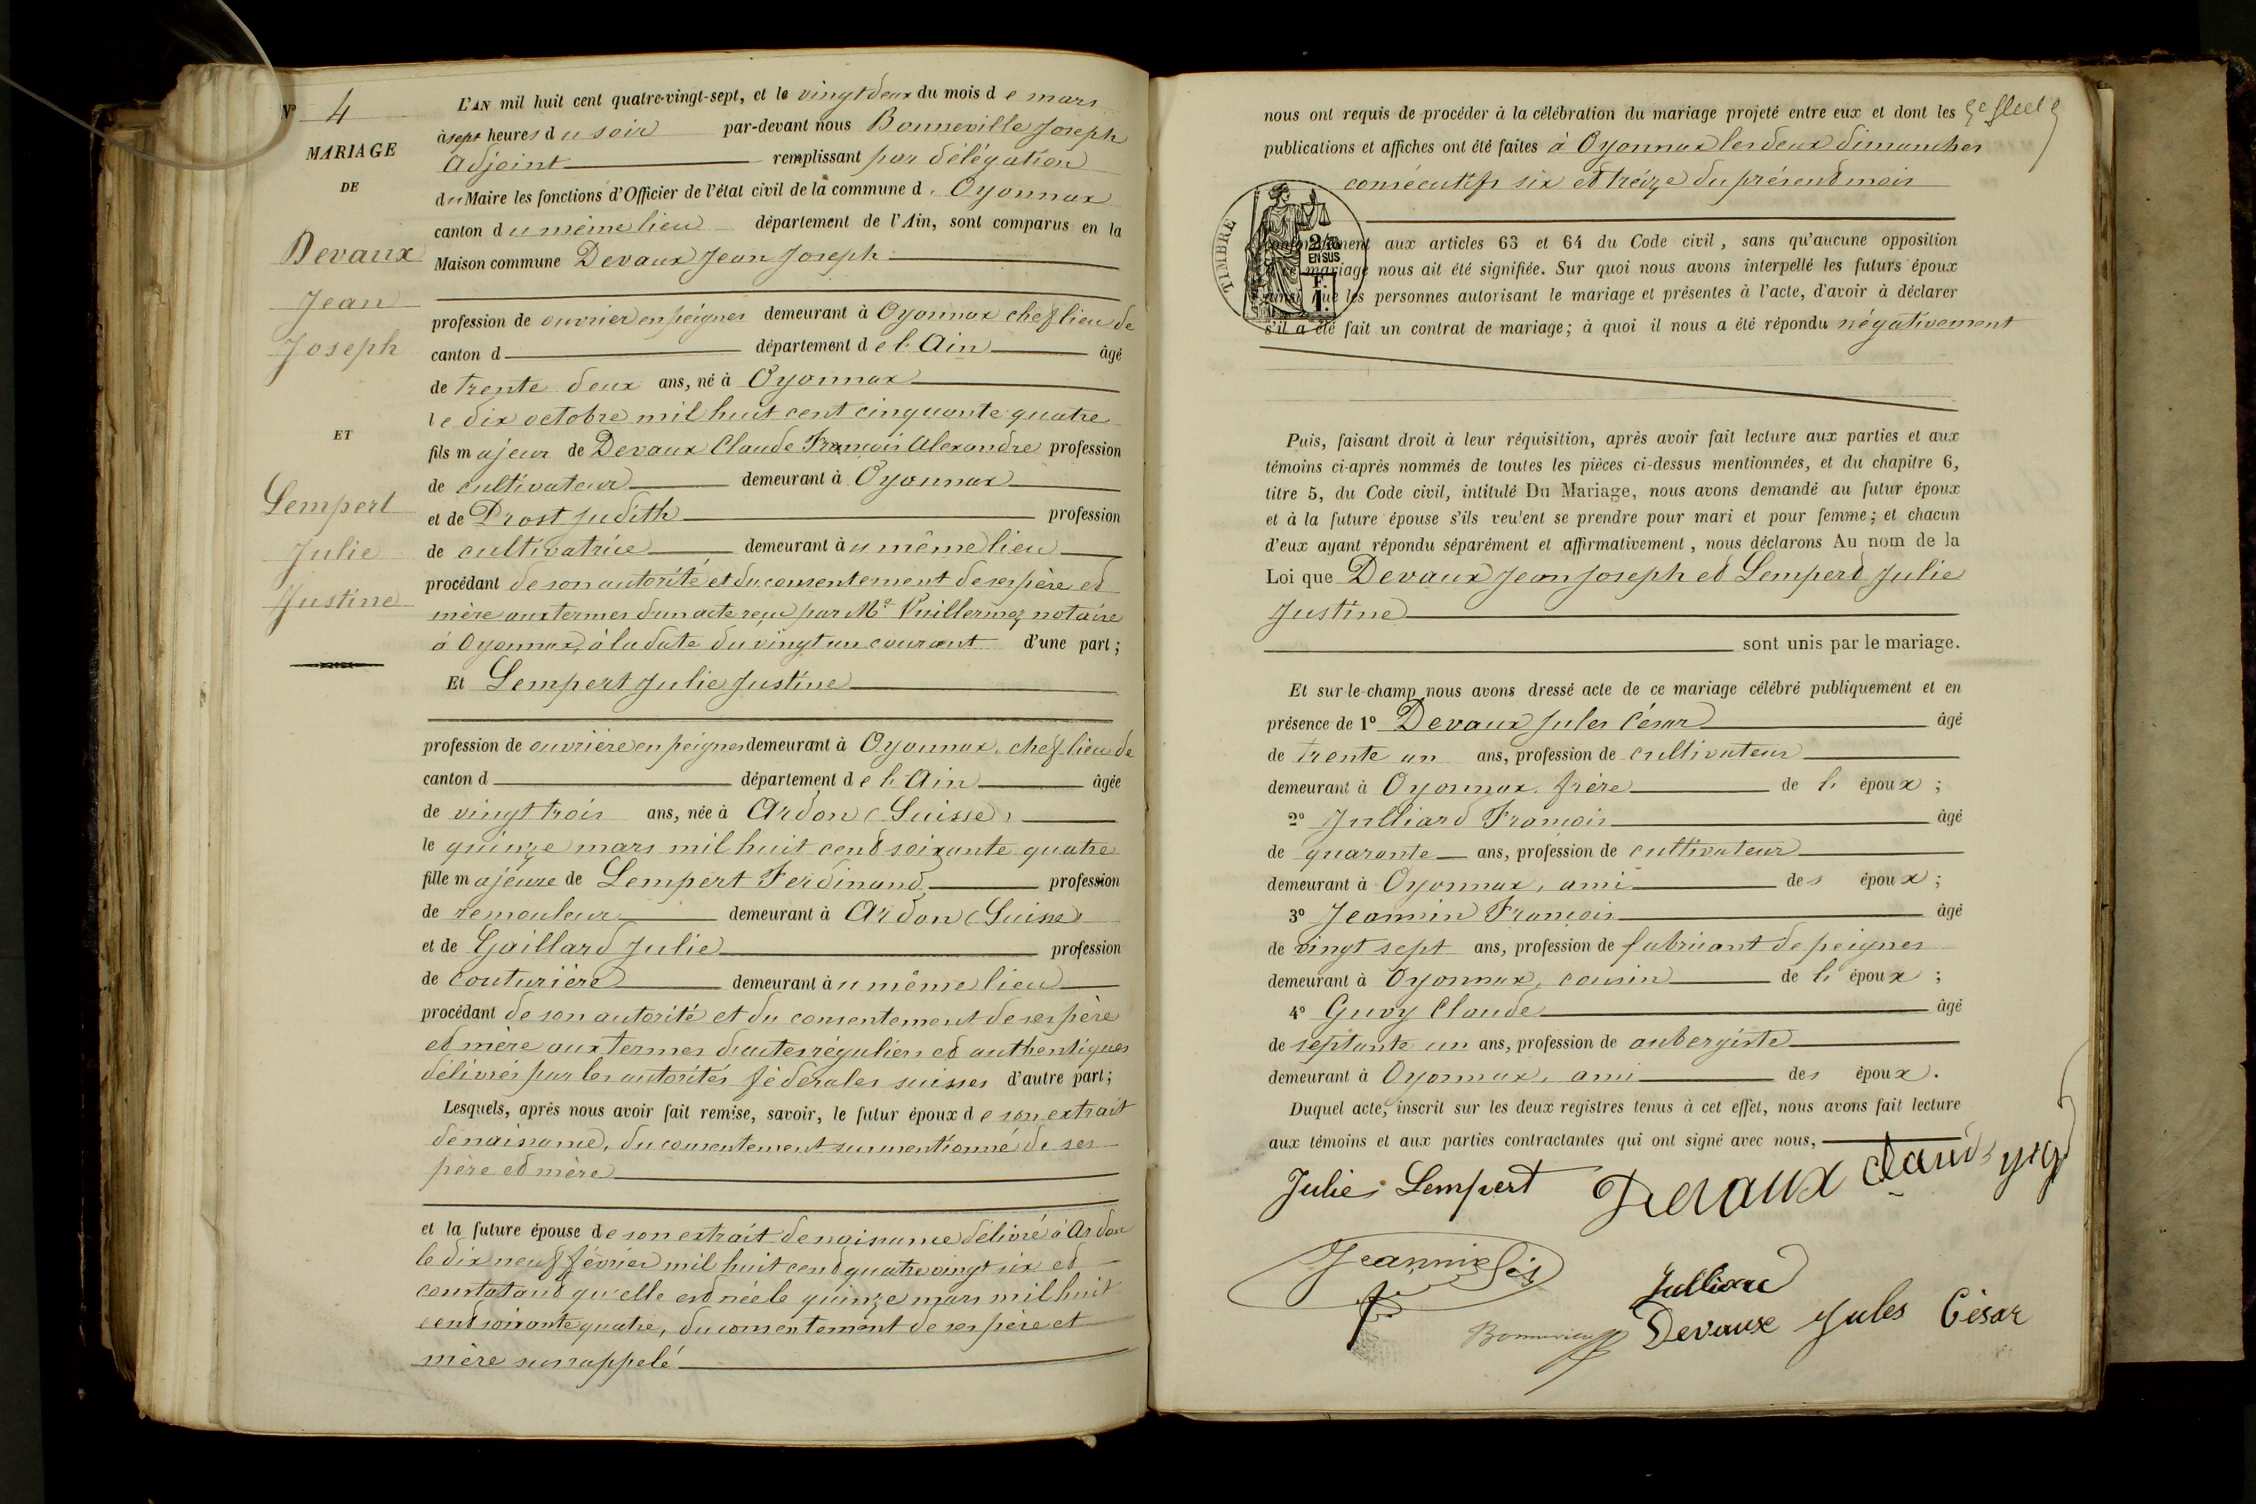 N° 4
MARIAGE
DE
Devaux
Jean
Joseph
ET
Lempert
Julie
Justine
L'AN mil huit cent quatre-vingt-sept, et le vingt deux du mois de mars
à sept heures du soir par-devant nous Bonneville Joseph
Adjoint remplissant par délégation
du Maire les fonctions d'Officier de l'état civil de la commune d. Oyonnax
canton du même lieu département de l'Ain, sont comparus en la
Maison commune Devaux Jean Joseph
profession de ouvrier en peignes demeurant à Oyonnax chef lieu de
canton d département de l'Ain âgé
de trente deux ans, né à Oyonnax
le dix octobre mil huit cent cinquante quatre
fils majeur de Devaux Claude François Alexandre profession
de cultivateur demeurant à Oyonnax
et de Prost Judith profession
de cultivatrice demeurant au même lieu
procédant de son autorité et du consentement de ses père et
mère aux termes d'un acte reçu par Me Vuillermoz notaire
à Oyonnax, à la date du vingt un courant d'une part;
Et Lempert Julie Justine
profession de ouvrière en peignes demeurant à Oyonnax, chef lieu de
canton d département de l'Ain âgée
de vingt trois ans, née à Ardon (Suisse)
le quinze mars mil huit cent soixante quatre
fille majeure de Lempert Ferdinand profession
de remouleur demeurant à Ardon (Suisse)
et de Gaillard Julie profession
de couturière demeurant au même lieu
procédant de son autorité et du consentement de ses père
et mère aux termes d'actes réguliers et authentiques
délivrés par les autorités fédérales suisses d'autre part;
Lesquels, après nous avoir fait remise, savoir, le futur époux de son extrait
de naissance, du consentement susmentionné de ses
père et mère
et la future épouse de son extrait de naissance délivré à Ardon
le dix neuf février mil huit cent quatre vingt six et
constatant qu'elle est née le quinze mars mil huit
cent soixante quatre, du consentement de ses père et
mère susrappelé
nous ont requis de procéder à la célébration du mariage projeté entre eux et dont les
publications et affiches ont été faites à Oyonnax les deux dimanches
consécutifs six et treize du présent mois
TIMBRE
2/10
EN SUS
F.
1.
conformément aux articles 63 et 64 du Code civil, sans qu'aucune opposition
à ce mariage nous ait été signifiée. Sur quoi nous avons interpellé les futurs époux
ainsi que les personnes autorisant le mariage et présentes à l'acte, d'avoir à déclarer
s'il a été fait un contrat de mariage; à quoi il nous a été répondu négativement
Puis, faisant droit à leur réquisition, après avoir fait lecture aux parties et aux
témoins ci-après nommés de toutes les pièces ci-dessus mentionnées, et du chapitre 6,
titre 5, du Code civil, intitulé Du Mariage, nous avons demandé au futur époux
et à la future épouse s'ils veu'ent se prendre pour mari et pour femme; et chacun
d'eux ayant répondu séparément et affirmativement, nous déclarons Au nom de la
Loi que Devaux Jean Joseph et Lempert Julie
Justine
sont unis par le mariage.
Et sur-le-champ nous avons dressé acte de ce mariage célébré publiquement et en
présence de 1° Devaux Jules César âgé
de trente un ans, profession de cultivateur
demeurant à Oyonnax, frère de l' époux;
2° Julliard François âgé
de quarante ans, profession de cultivateur
demeurant à Oyonnax, ami des époux;
3° Jeannin François âgé
de vingt sept ans, profession de fabricant de peignes
demeurant à Oyonnax, cousin de l' époux;
4° Guoy Claude âgé
de septante un ans, profession de aubergiste
demeurant à Oyonnax, ami des époux.
Duquel acte, inscrit sur les deux registres tenus à cet effet, nous avons fait lecture
aux témoins et aux parties contractantes qui ont signé avec nous,
Julie Lempert Devaux Claude
Jeannin fçis
Julliard
Devaux Jules César